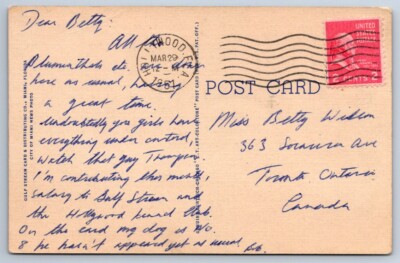 Dear Betty
All the
Blumenthals etc. are down
here as usual, having
a great time.
Undoubtedly you girls have
everything under control,
Watch that guy Thompson.
I'm contributing this month's
salary to Gulf Stream and
the Hollywood Kennel Club.
On the card my dog is No.
8 he hasn't appeared yet as usual
HOLLYWOOD, FLA
MAR 29
12 - PM
195
UNITED STATES
2 CENTS 2
POST CARD
Miss Betty Wilson
363 Sorauren Ave
Toronto Ontario
Canada
GULF STREAM CARD & DISTRIBUTING CO., MIAMI, FLORIDA
CITY OF MIAMI NEWS PHOTO